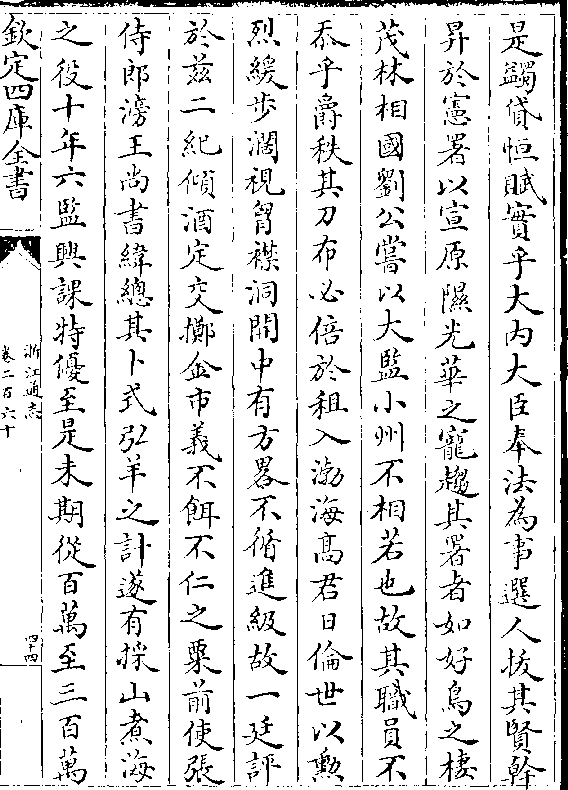 是蠲貸恒賦實乎大内大臣奉法為事選人拔其賢幹
昇於憲署以宣原隰光華之寵趨其署者如好鳥之棲
茂林相國劉公嘗以大監小州不相若也故其職員不
忝乎爵秩其刀布必倍於租入渤海髙君曰倫世以勲
烈緩步濶視胷襟洞開中有方畧不循進級故一廷評
於兹二紀傾酒定交擲金市義不餌不仁之粟前使張
侍郎滂王尚書緯總其卜式弘羊之計遂有採山煮海
之役十年六監興課特優至是未期從百萬至三百萬
欽定四庫全書
浙江通志
卷二百六十
四十四